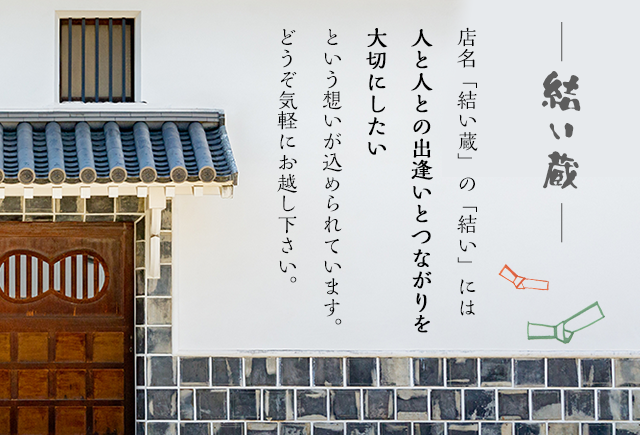 結い蔵
店名「結い蔵」の「結い」には
人と人との出逢いとつながりを
大切にしたい
という想いが込められています。
どうぞ気軽にお越し下さい。